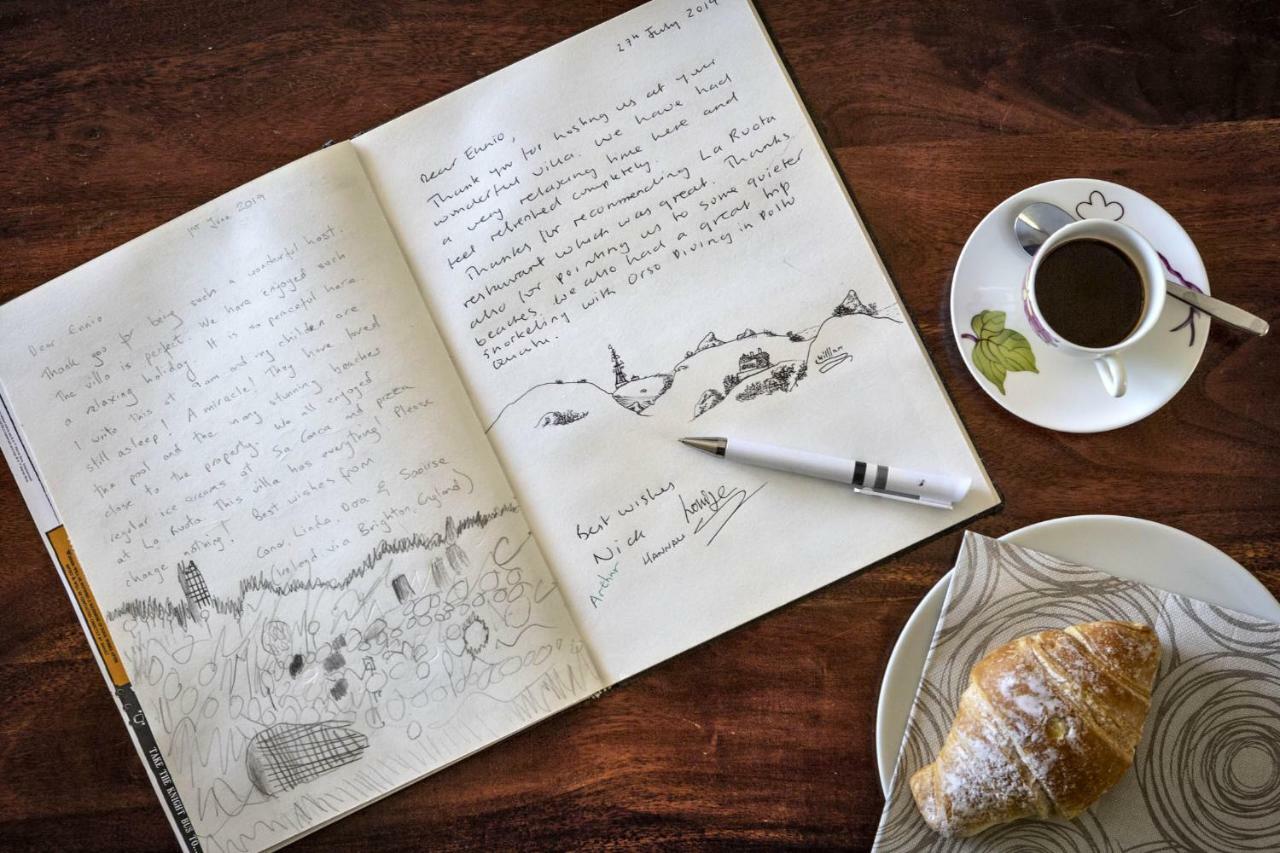 1st June 2019
Dear Ennio
Thank you for being such a wonderful host.
The villa is perfect. We have enjoyed such
a relaxing holiday. It is so peaceful here.
I write this at am and my children are
still asleep! A miracle! They have loved
the pool and the many stunning beaches
close to the property. We all enjoyed
regular ice creams at Sa Conca and pizza
at La Ruota. This villa has everything! Please
change nothing! Best wishes from
Conor, Linda, Dora & Saoirse
(via Brighton, England)
27th July 2019
Dear Ennio,
Thank you for hosting us at your
wonderful villa. We have had
a very relaxing time here and
feel refreshed completely.
Thanks for recommending La Ruota
restaurant which was great. Thanks
also for pointing us to some quieter
beaches. We also had a great trip
snorkeling with Orso Diving in Poltu
Quatu.
William
Best wishes
Nick
Hannah
Louise
Arthur
TAKE THE KNIGHT BUS TO...